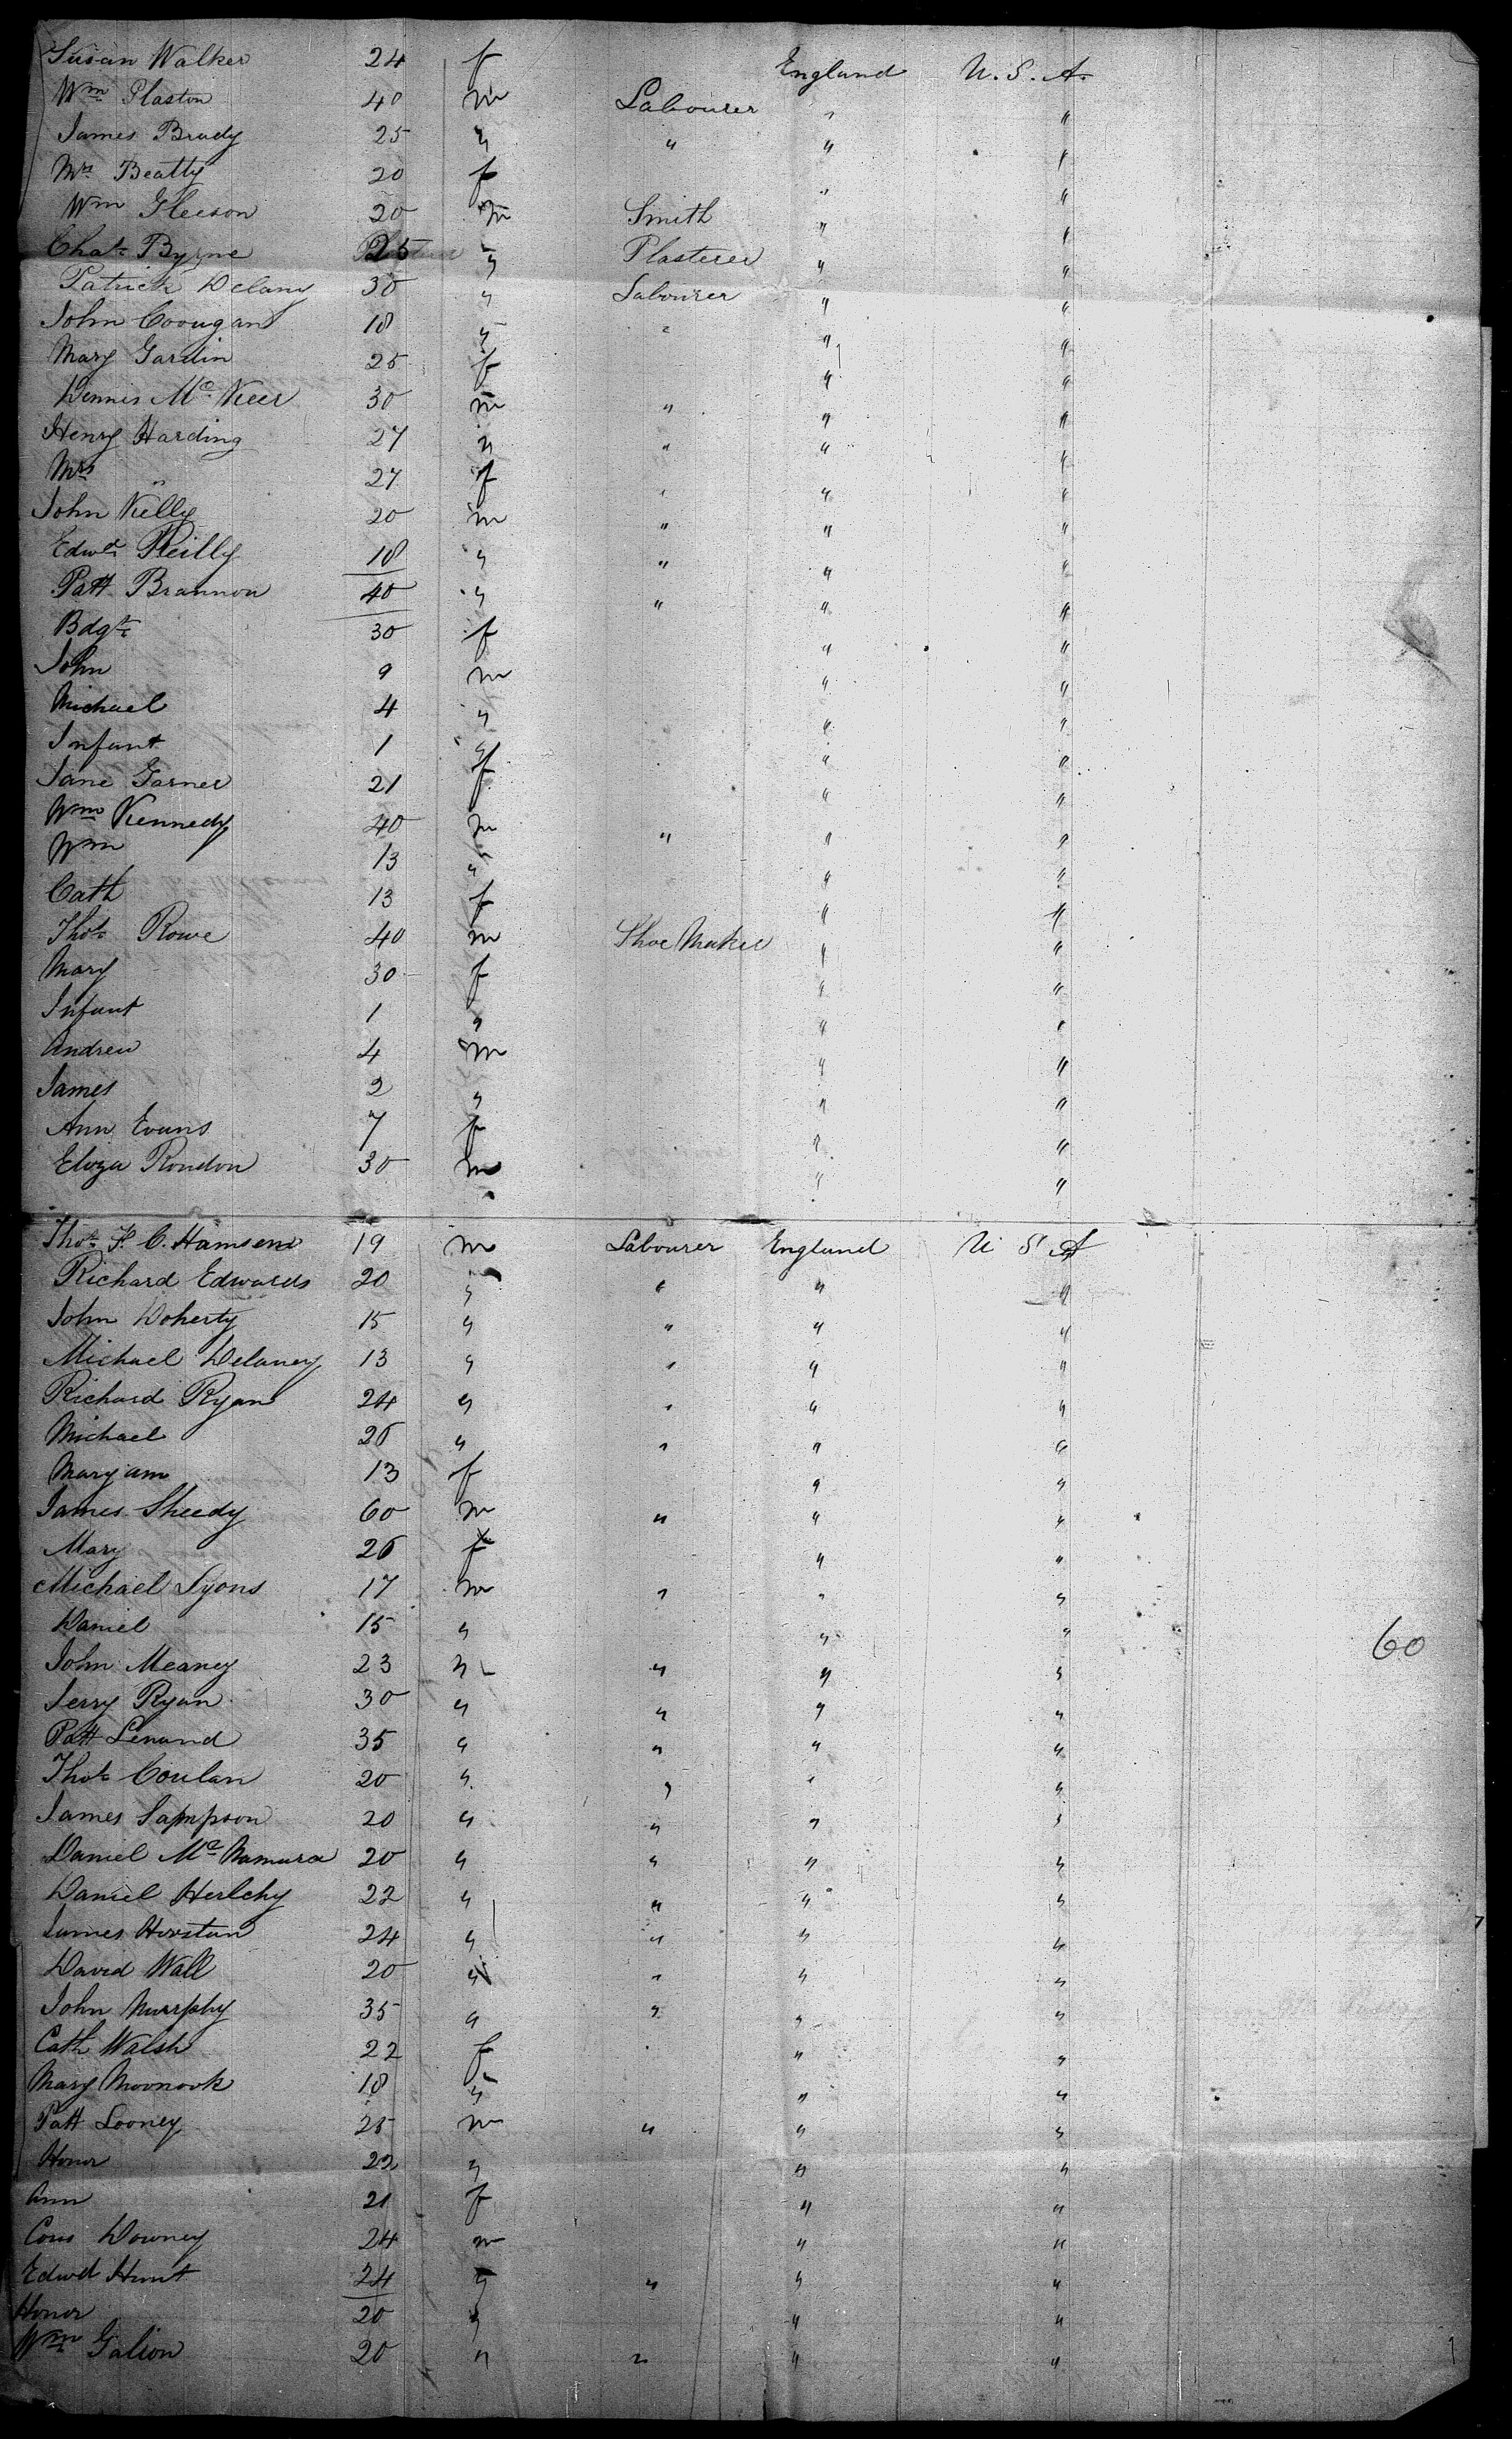 Susan Walker 24 f England U. S. A.
Wm Plaston 40 m Labourer " "
James Brady 25 " " " "
Mrs Beatty 20 f " "
Wm Gleeson 20 m Smith " "
Chas Byrne 25 " Plasterer " "
Patrick Delany 30 " Labourer " "
John Coougan 18 " " " "
Mary Gardin 25 f " "
Dennis Mc Keer 30 m " " "
Henry Harding 27 " " " "
Mrs " 27 f " " "
John Kelly 20 m " " "
Edwd Reilly 18 " " " "
Patt Brannon 40 " " " "
Bdgt 30 f " "
John 9 m " "
Michael 4 " " "
Infant 1 " " "
Jane Garner 21 f " "
Wm Kennedy 40 m " " "
Wm 13 " " "
Cath 13 f " "
Thos Rowe 40 m Shoe Maker " "
Mary 30 f " "
Infant 1 " " "
Andrew 4 m " "
James 2 " " "
Ann Evans 7 f " "
Eliza Rondon 30 m " "
Thos F. C. Hamsem 19 m Labourer England U S A
Richard Edwards 20 " " " "
John Doherty 15 " " " "
Michael Delaney 13 " " " "
Richard Ryan 24 " " " "
Michael 26 " " " "
Maryam 13 f " "
James Sheedy 60 m " " "
Mary 26 f " "
Michael Lyons 17 m " " "
Daniel 15 " " "
John Meaney 23 " " " "
Jerry Ryan 30 " " " "
Patt Lenand 35 " " " "
Thos Coulan 20 " " " "
James Sampson 20 " " " "
Daniel Mc Namara 20 " " " "
Daniel Herlehy 22 " " " "
James Horstan 24 " " " "
David Wall 20 " " " "
John Murrphy 35 " " " "
Cath Walsh 22 f " "
Mary Moonook 18 " " "
Patt Looney 25 m " " "
Honor 22 " " "
Ann 21 f " "
Cons Downey 24 m " "
Edwd Hunt 24 " " " "
Honor 20 " " "
Wm Galion 20 " " " "
60